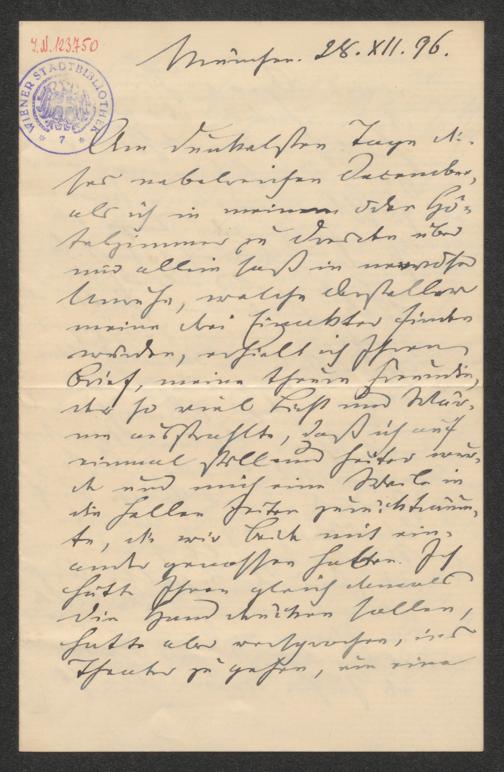 J.N. 123.750
WIENER STADTBIBLIOTHEK
* 7 *
München. 28. XII. 96.
Am dunkelsten Tage die-
ses nebelreichen December,
als ich in meinem öden Hô-
telzimmer zu Dresden über
und allein saß in nervöser
Unruhe, welche Darsteller
meine drei Einakter finden
würden, erhielt ich Ihren
Brief, meine theure Freundin,
der so viel Licht und Wär-
me ausstrahlte, daß ich auf
einmal still und heiter wur-
de und mich eine Weile in
die hellen Zeiten zurückträum-
te, die wir beide mit ein-
ander genossen hatten. Ich
hätte Ihnen gleich damals
die Hand drücken sollen,
hatte aber versprochen, ins
Theater zu gehen, um eine